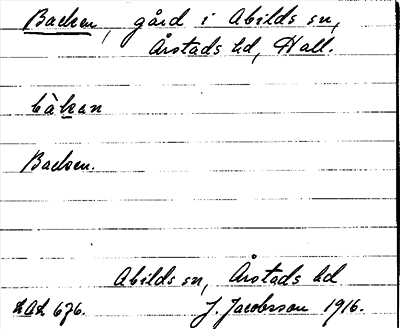 Backen, gård i Abilds sn,
Årstads hd, Hall.
bàkan
Backen.
Abilds sn, Årstads hd
LAL 676. J. Jacobsson 1916.